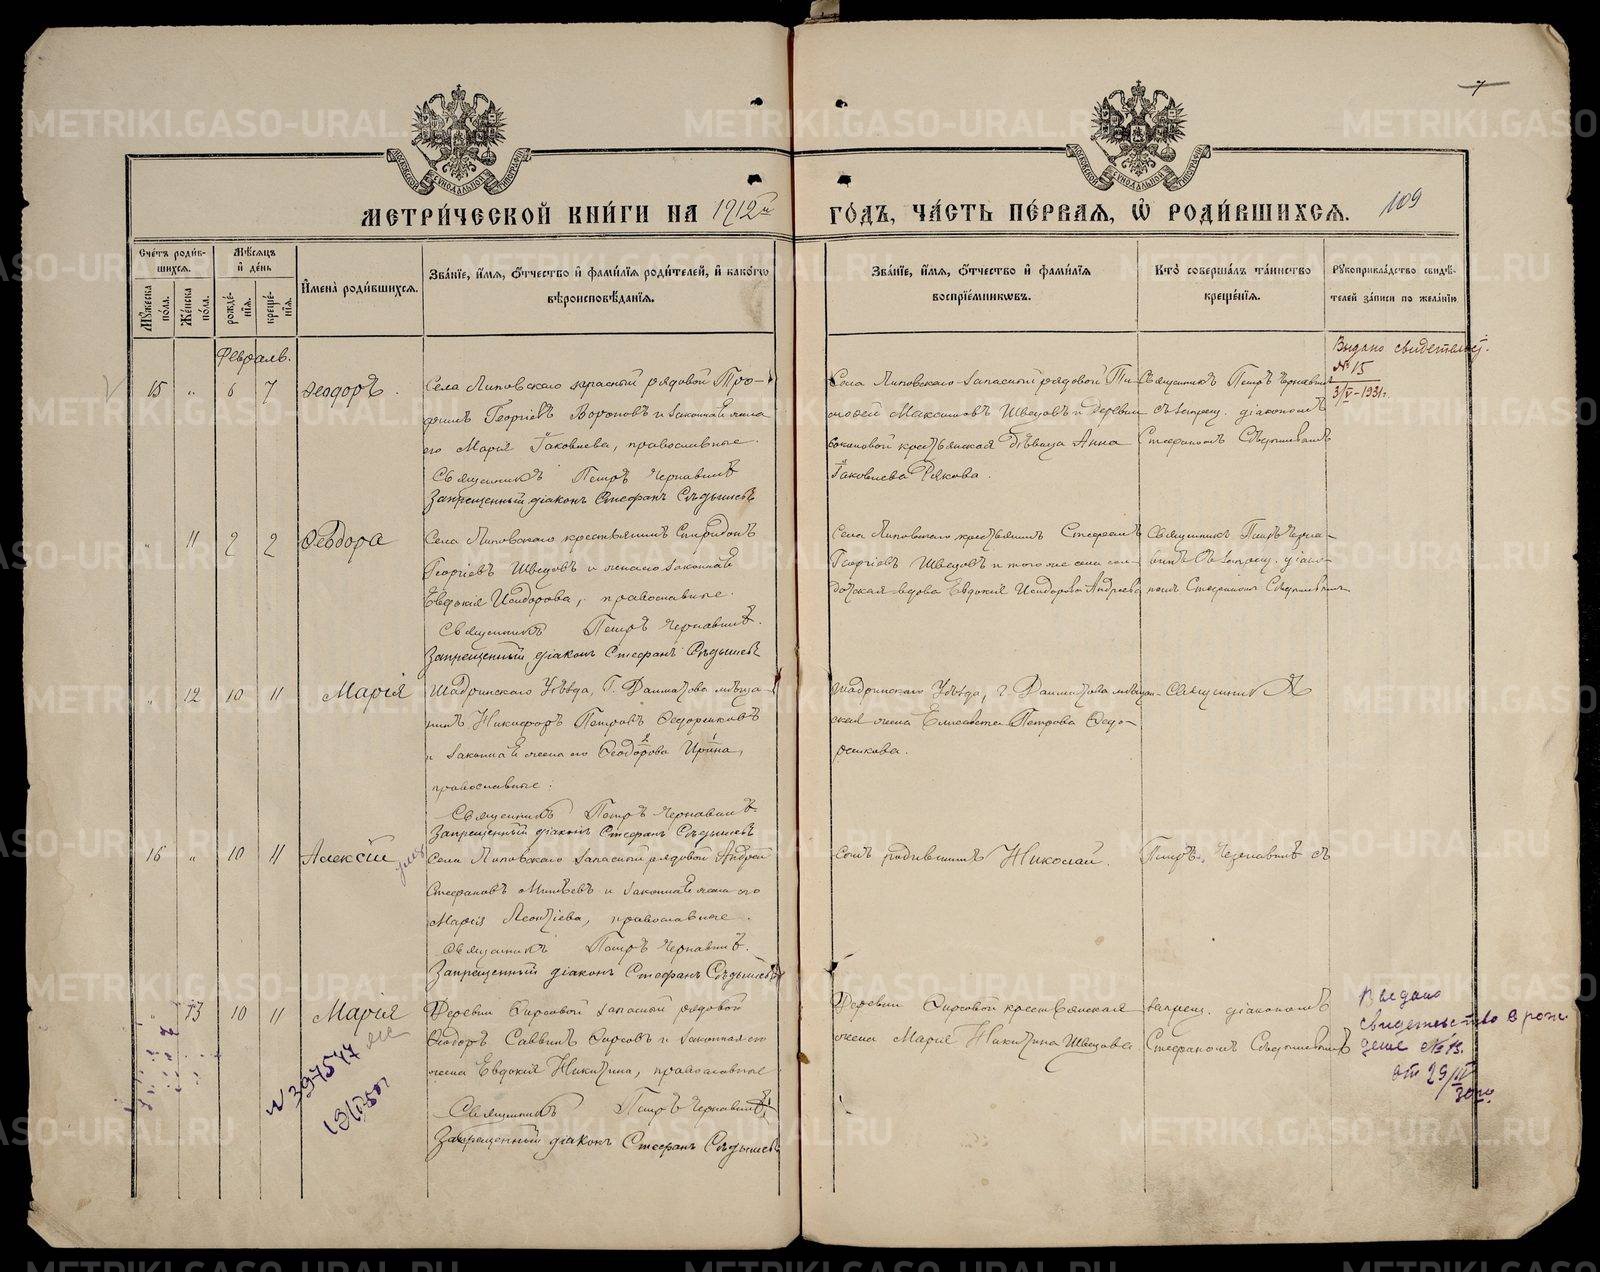 7
МЕТРИ́ЧЕСКОЙ КНИ́ГИ НА 1912й ГО́ДЪ, ЧА́СТЬ ПЕ́РВАЯ, Ѡ РОДИ́ВШИХСЯ.
109
Сче́тъ роди́вшихся.
Му́жеска по́ла.
Же́нска по́ла.
Мѣ́сяцъ и де́нь
рожде́нія.
креще́нія.
И́мена̀ роди́вшихся.
Зва́ніе, и́мя, о́тчество и фами́лія роди́телей, и како́гѡ
вѣроисповѣ́данія.
Зва́ніе, и́мя, о́тчество и фами́лія
воспріе́мникѡвъ.
Кто̀ соверша́лъ та́инство
креще́нія.
Рукоприкла́дство свидѣ́-
телей за́писи по жела́нію
Февраль.
15 " 6 7 Ѳеодоръ.
Села Липовскаго запасный рядовой Тро-
фимъ Георгіевъ Вороновъ и законная жена
его Марія Іаковлева, православные.
Священникъ Петръ Чернавинъ
Запрещенный діаконъ Стефанъ Сѣдышевъ
Села Липовскаго запасный рядовой Ти-
мофей Максимовъ Швецовъ и деревни
крестьянская дѣвица Анна
Іаковлева
Священникъ Петръ Чернавинъ
съ запрещ. діакономъ
Стефаномъ Сѣдышевымъ
Выдано свидетельст.
№ 15
3/V-1931г.
" 11 2 2 Ѳеодора
Села Липовскаго крестьянинъ Спиридонъ
Георгіевъ Швецовъ и жена его законная
Евдокія Исидорова, православные.
Священникъ Петръ Чернавинъ.
Запрещенный діаконъ Стефанъ Сѣдышевъ
Села Липовскаго крестьянинъ Стефанъ
Георгіевъ Швецовъ и того же села сол-
датская вдова Евдокія Исидорова Андреева
Священникъ Петръ Черна-
винъ съ запрещ. діако-
номъ Стефаномъ Сѣдышевымъ
" 12 10 11 Марія
Шадринскаго Уѣзда, Г. Далматова мѣща-
нинъ Никифоръ Петровъ Ѳедоренковъ
и законная жена его Ѳеодорова Ирина,
православные.
Священникъ Петръ Чернавинъ
Запрещенный діаконъ Стефанъ Сѣдышевъ
Шадринскаго Уѣзда, г. Далматова мѣщан-
ская жена Елисавета Петрова Ѳедо-
ренкова.
Священникъ
16 " 10 11 Алексій
Села Липовскаго запасный рядовой Андрей
Стефановъ Минѣевъ и законная жена его
Марія Леонтіева, православные.
Священникъ Петръ Чернавинъ.
Запрещенный діаконъ Стефанъ Сѣдышевъ
сынъ Николай.
Петръ Чернавинъ съ
13 10 11 Марія
Деревни Фирсовой запасный рядовой
Ѳеодоръ Саввинъ Фирсовъ и законная его
жена Евдокія Никитина, православные
Священникъ Петръ Чернавинъ
Запрещенный діаконъ Стефанъ Сѣдышевъ
Деревни Фирсовой крестьянская
жена Марія Никитина Швецова
запрещ. діакономъ
Стефаномъ Сѣдышевымъ
Выдано
свидетельство о рож
дение №13.
от 29/IV
30 г.
METRIKI.GASO-URAL.RU